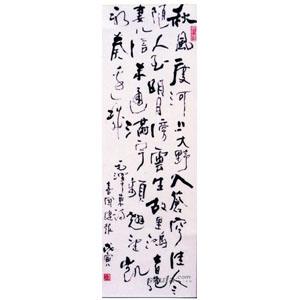 秋風度河上大野入蒼穹佳令
隨人至明月傍雲生故里鴻音絕
妻兒信未通滿宇頻翹望凱
歌奏邊城
毛澤東詩
喜聞捷報